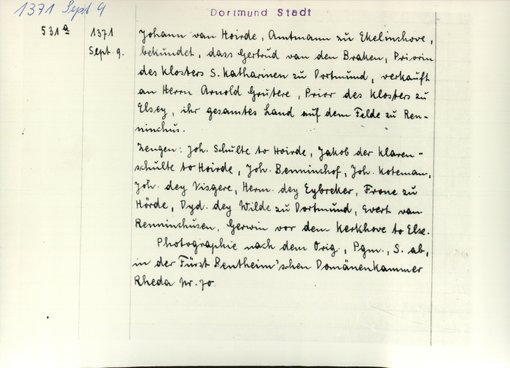 1371 Sept 9
Dortmund Stadt
531a
1371
Sept. 9.
Johann van Hoirde, Amtmann zu Ekelinchove,
bekündet, dass Gertrud van den Braken, Priorin
des Klosters S. Katharinen zu Dortmund, verkauft
an Herrn Arnold Grutere, Prior des Klosters zu
Elsey, ihr gesamtes Land auf dem Felde zu Ren-
ninchus.
Zeugen: Joh. Schulte to Hoirde, Jakob der Klaren-
schulte to Hoirde, Joh. Benninchof, Joh. Koteman,
Joh. dey Visgere, Herm. dey Eybreker, Frone zu
Hörde, Dyd. dey Wilde zu Dortmund, Evert van
Renninchusen, Gerwin vor dem Kerkhove to Else.
Photographie nach dem Orig., Pgm., S. ab,
in der Fürst Bentheim'schen Domänenkammer
Rheda Nr. 70